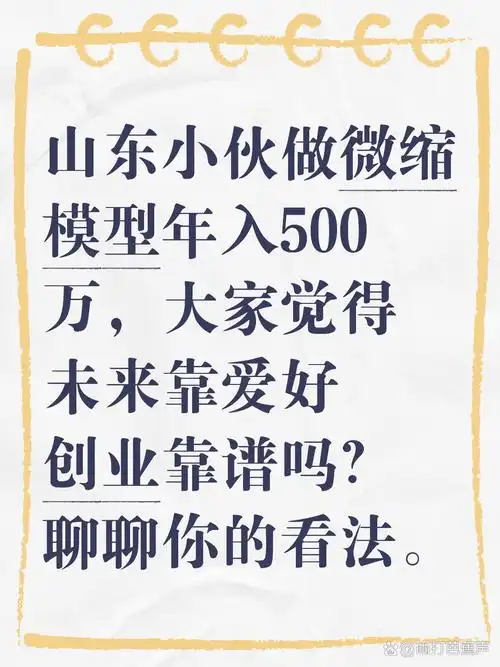 山东小伙做微缩
模型年入500
万，大家觉得
未来靠爱好
创业靠谱吗？
聊聊你的看法。